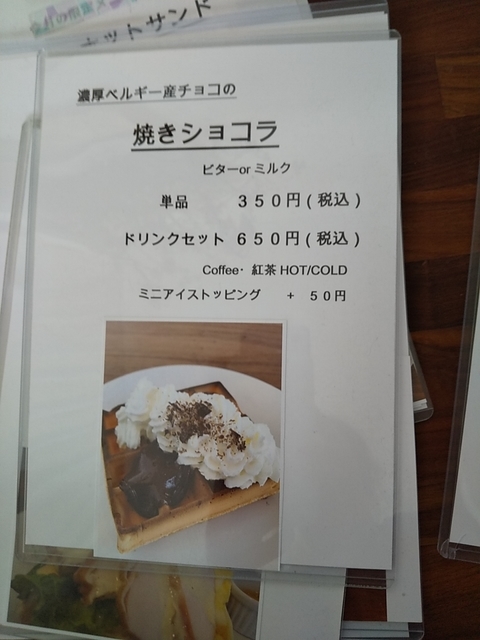 ホットサンド
濃厚ベルギー産チョコの
焼きショコラ
ビターorミルク
単品 350円(税込)
ドリンクセット 650円(税込)
Coffee・紅茶 HOT/COLD
ミニアイストッピング + 50円